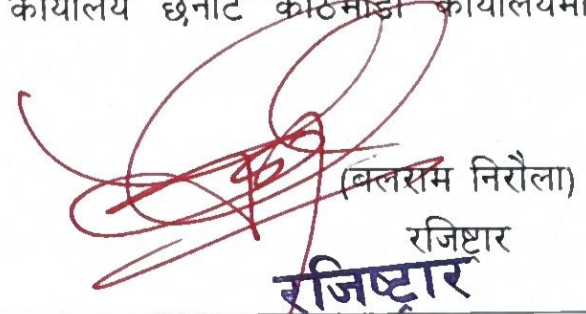 कार्यालय छनोट काठमाडौं कार्यालयमा
(बलराम निरौला)
रजिष्ट्रार
रजिष्ट्रार